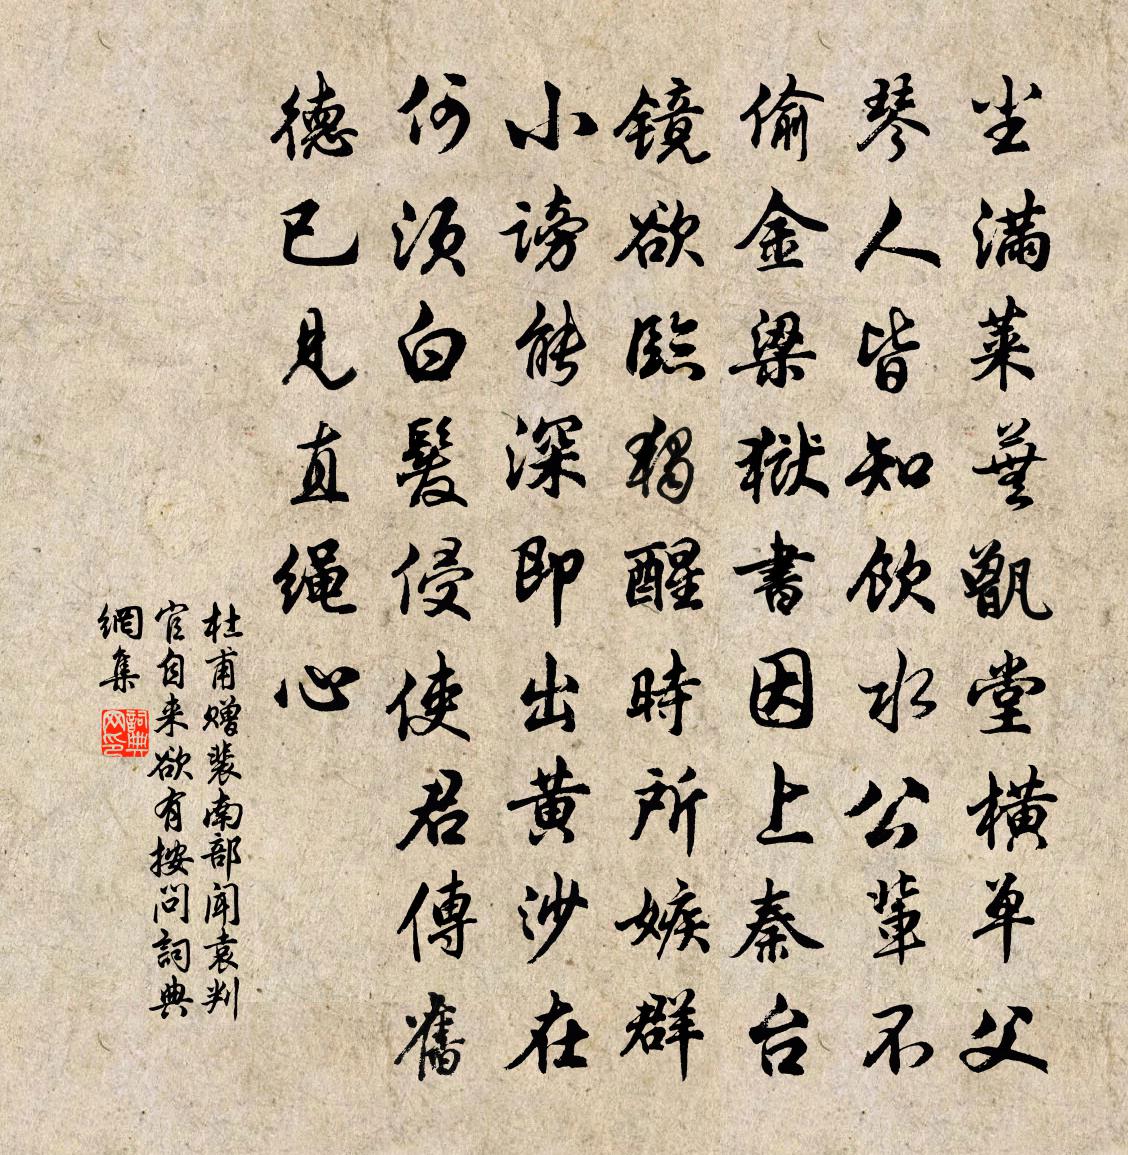 尘满莱芜甑堂横单父
琴人皆知饮水公辈不
偷金梁狱书因上秦台
镜欲临独醒时所嫉群
小谤能深即出黄沙在
何须白发侵使君传旧
德已见直绳心
杜甫赠裴南部闻袁判
官自来欲有按问词典
网集
詞典
网印